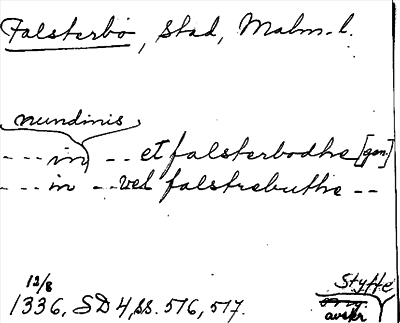 Falsterbo, Stad, Malm. l.
nundinis
--- in -- et falsterbodhe [gen.]
--- in -- vel falstrebuthe --
12/8
1336, SD 4, ss. 516, 517.
Styffe
avskr